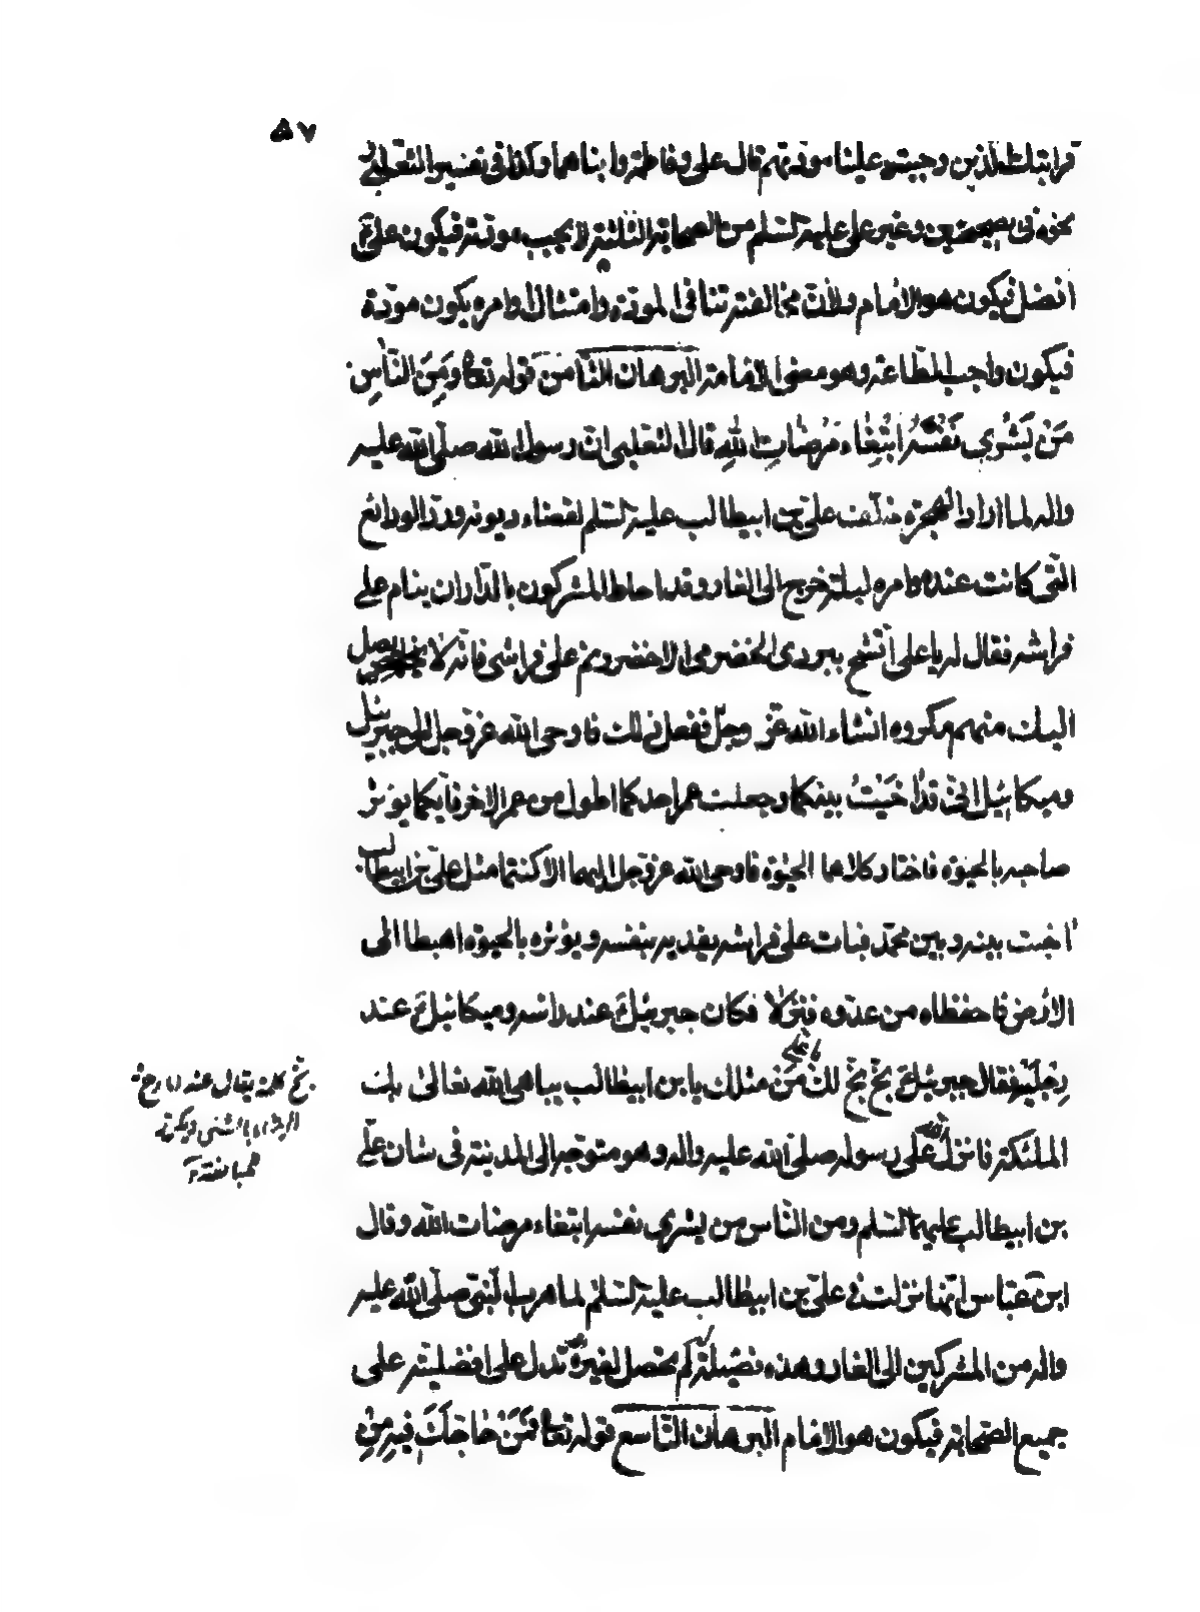 ٥٧
قرابتك الذين وجبت علينا مودتهم قال علي وفاطمة وابناهما وكذا في تفسير الثعلبي
نحوه في الصحيحين وغير علي عليه السلم من الصحابة الثلثة لا يجب مودته فيكون علي ع
افضل فيكون هو الامام ولان مخالفته تنافي المودة وامتثال اوامره يكون مودة
فيكون واجب الطاعة وهو معنى الامامة البرهان الثامن قوله تعالى وَمِنَ النَّاسِ
مَنْ يَشْرِي نَفْسَهُ ابْتِغَاءَ مَرْضَاتِ اللهِ قال الثعلبي ان رسول الله صلى الله عليه
واله لما اراد الهجرة خلف علي بن ابيطالب عليه السلم لقضاء ديونه ورد الودائع
التي كانت عنده وامره ليلة خرج الى الغار وقد احاط المشركون بالدار ان ينام على
فراشه فقال له يا علي اتشح ببردي الحضرمي الاخضر ونم على فراشي فانه لا يخلص
اليك منهم مكروه انشاء الله عز وجل ففعل ذلك فاوحى الله عز وجل الى جبرئيل
وميكائيل اني قد اخَيْتُ بينكما وجعلت عمر احدكما اطول من عمر الاخر فايكما يؤثر
صاحبه بالحيوة فاختار كلاهما الحيوة فاوحى الله عز وجل اليهما الا كنتما مثل علي بن ابيطالب
اخيت بينه وبين محمد فبات على فراشه يفديه بنفسه ويؤثره بالحيوة اهبطا الى
الارض فاحفظاه من عدوه فنزلا فكان جبرئيل ع عند راسه وميكائيل ع عند
رجليه فقال جبرئيل ع بخ بخ لك مَن مثلك يا بن ابيطالب يباهي الله تعالى بك
الملئكة فانزل الله على رسوله صلى الله عليه واله وهو متوجه الى المدينة في شان علي
بن ابيطالب عليهما السلم ومن الناس من يشري نفسه ابتغاء مرضات الله وقال
ابن عباس انها نزلت في علي بن ابيطالب عليه السلم لما هرب النبي صلى الله عليه
واله من المشركين الى الغار وهذه فضيلة لم يحصل لغيره تدل على افضليته على
جميع الصحابة فيكون هو الامام البرهان التاسع قوله تعالى فَمَنْ حَاجَّكَ فِيهِ مِنْ
يا علي
بخ كلمة يقال عند المدح
والرضاء بالشئ ويكرر
للمبالغة